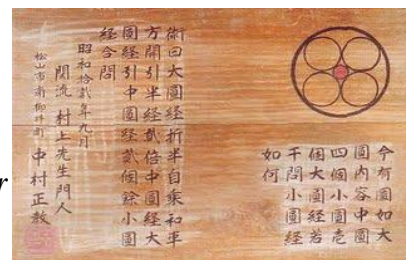 今有圖如大
圓内容中圓
四個小圓壱
個大圓経若
干問小圓経
如何
術曰大圓経折半自乗和平
方開引半経貳倍中圓経大
圓経引中圓経貳個餘小圓
経合問
昭和拾貳年九月
関流 村上先生門人
松山市 井町 中村正教
r